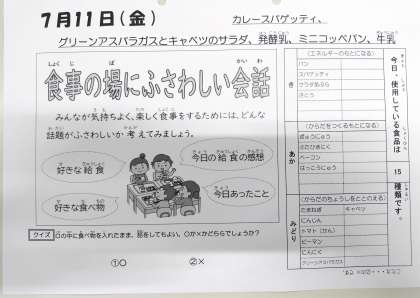 7月11日(金)
カレースパゲッティ、
グリーンアスパラガスとキャベツのサラダ、発酵乳、ミニコッペパン、牛乳
食事の場にふさわしい会話
みんなが気持ちよく、楽しく食事をするためには、どんな
話題がふさわしいか考えてみましょう。
好きな給食
今日の給食の感想
好きな食べ物
今日あったこと
クイズ 口の中に食べ物を入れたまま、話をしてもよい。○か×かどちらでしょうか?
①○ ②×
今日、使用している食品は
15
種類です。
き
(エネルギーのもとになる)
パン
スパゲッティ
サラダあぶら
さとう
あか
(からだをつくるもとになる)
ぎゅうにゅう
ぶたひきにく
ベーコン
はっこうにゅう
みどり
(からだのちょうしをととのえる)
たまねぎ キャベツ
にんじん
トマト(かん)
ピーマン
にんにく
グリーンアスパラガス